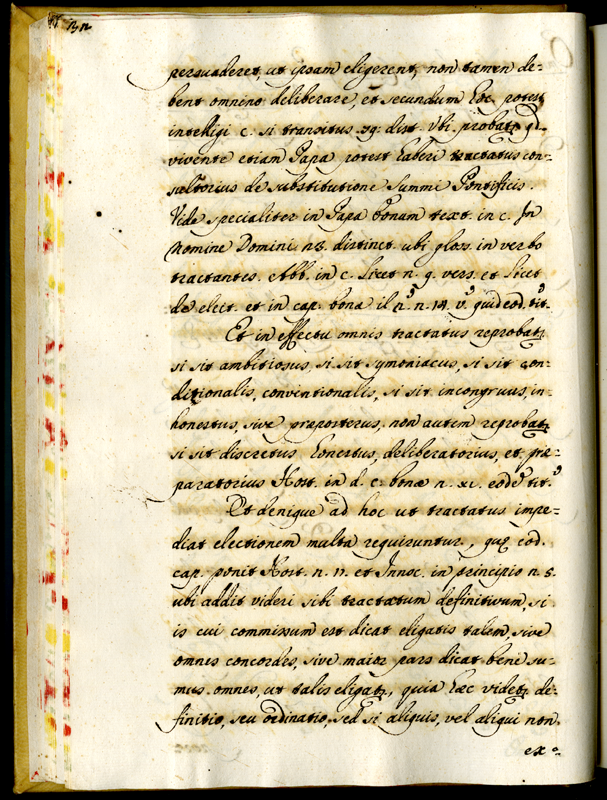 persuaderet, ut ipsam eligerent, non tamen de=
bent omnino deliberare, et secundum hoc potest
intelligi c. si transitus 79. dist. Ubi probatr qd
vivente etiam Papa potest haberi tractatus con=
sultorius de substitutione Summi Pontificis.
Vide specialiter in Papa bonum text. in c. In
Nomine Domini n3. distinct. ubi glos. in verbo
tractantes. Abb. in c. Licet n. 9. vers. et licet
de elect. et in cap. bonæ il n. 14. v. quid eod. tit.
Et in effectu omnis tractatus reprobatr
si sit ambitiosus, si sit symoniacus, si sit con=
ditionalis, conventionalis, si sit incongruus, in=
honestus, sive præposterus, non autem reprobatr
si sit discretus honestus, deliberatorius, et præ=
paratorius Host. in d. c. bonæ n. xi. eod. tit.
Et denique ad hoc ut tractatus impe=
diat electionem multa requiruntur, quæ eod.
cap. ponit Host. n. 11. et Innoc. in principio n. 5.
ubi addit videri sibi tractatum definitivum, si
is cui commissum est dicat eligatis talem, sive
omnes concordes, sive maior pars dicat bene su=
mus omnes, ut talis eligatr, quia hæc videtr de=
finitio, seu ordinatio, sed si aliquis, vel aliqui non
ex